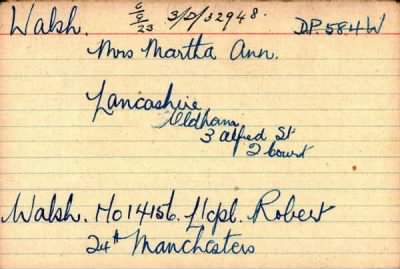 Walsh. C/9/23 3/D/32948. D.P. 584W
Mrs Martha Ann.
Lancashire
Oldham
3 Alfred St
2 Court
Walsh. No 14156. L/cpl. Robert
24th Manchesters